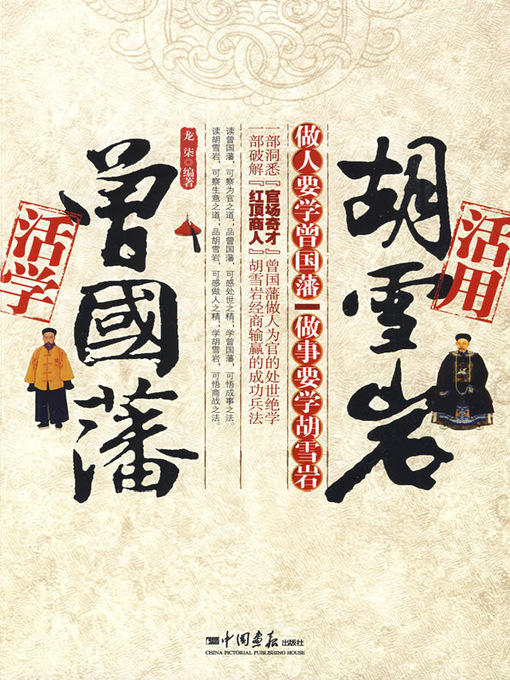 胡雪岩
活用
做人要学曾国藩 做事要学胡雪岩
一部洞悉『官场奇才』曾国藩做人为官的处世绝学
一部破解『红顶商人』胡雪岩经商输赢的成功兵法
读曾国藩，可察为官之道，品曾国藩，可感处世之精，学曾国藩，可悟成事之法。
读胡雪岩，可察生意之道，品胡雪岩，可感做人之精，学胡雪岩，可悟商战之法。
龙柒◎编著
曾國藩
活学
中国画报出版社
CHINA PICTORIAL PUBLISHING HOUSE